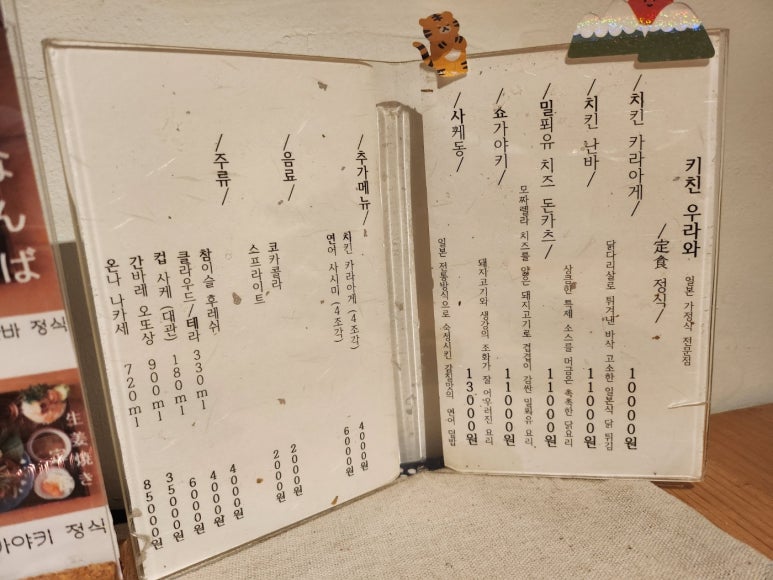 키친 우라와 일본 가정식 전문점
/定食 정식/
/치킨 카라아게/ 10000원
닭다리살로 튀겨낸 바삭 고소한 일본식 닭 튀김
/치킨 난바/ 11000원
상큼한 특제 소스를 머금은 촉촉한 닭요리
/밀푀유 치즈 돈카츠/ 11000원
모짜렐라 치즈를 얇은 돼지고기로 겹겹이 감싼 밀푀유 요리
/쇼가야키/ 11000원
돼지고기와 생강의 조화가 잘 어우러진 요리
/사케동/ 13000원
일본 전통방식으로 숙성시킨 감칠맛의 연어 덮밥
/추가메뉴/
치킨 카라아게 (4조각) 4000원
연어 사시미 (4조각) 6000원
/음료/
코카콜라 2000원
스프라이트 2000원
/주류/
참이슬 후레쉬 4000원
클라우드/테라 330ml 4000원
컵 사케 (대관) 180ml 6000원
간바레 오또상 900ml 35000원
온나 나카세 720ml 85000원
なんば
바 정식
生姜焼き
가야키 정식